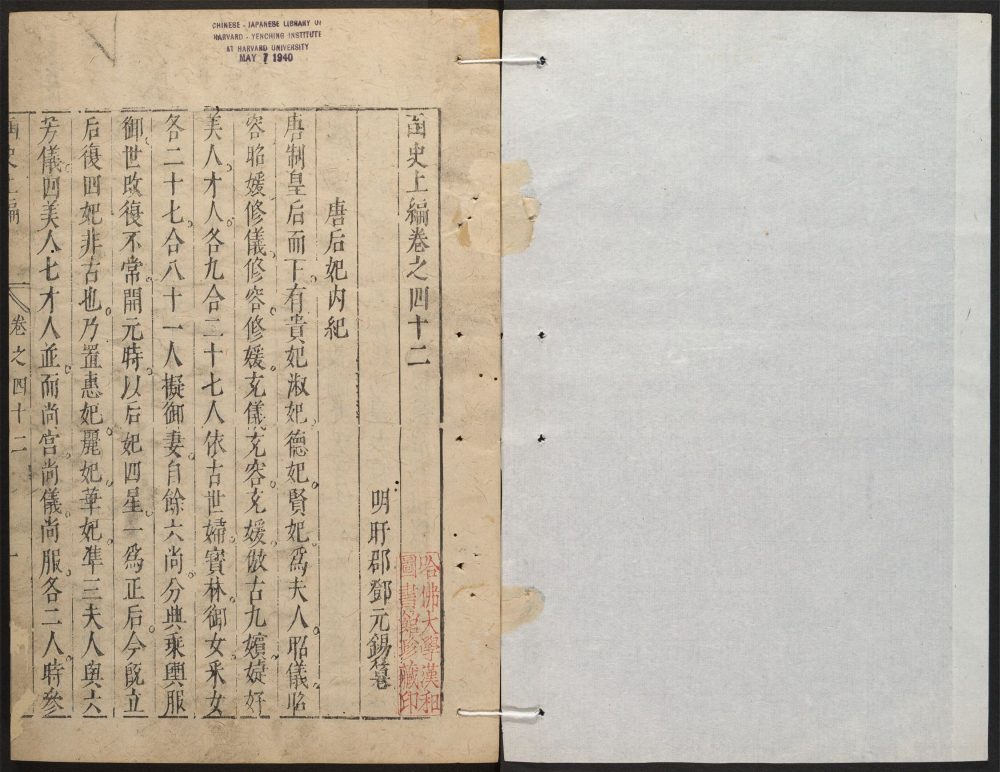 CHINESE - JAPANESE LIBRARY OF
HARVARD - YENCHING INSTITUTE
AT HARVARD UNIVERSITY
MAY 7 1940
函史上編卷之四十二
明盱郡鄧元錫纂
唐后妃内紀
唐制皇后而下。有貴妃淑妃。德妃。賢妃。爲夫人。昭儀。昭
容昭媛修儀。修容。修媛。充儀。充容。充媛。倣古九嬪。婕妤
美人。才人。各九合二十七人依古世婦。寶林。御女。采女
各二十七。合八十一人擬御妻。自餘六尚。分典乘輿服
御。世改復不常。開元時。以后妃四星。一爲正后。今既立
后復四妃非古也。乃置惠妃。麗妃。華妃。準三夫人與六
芳儀。四美人。七才人並。而尚宮。尚儀。尚服。各二人。時參
函史上編
卷之四十二
一
哈佛大學漢和
圖書館珍藏印